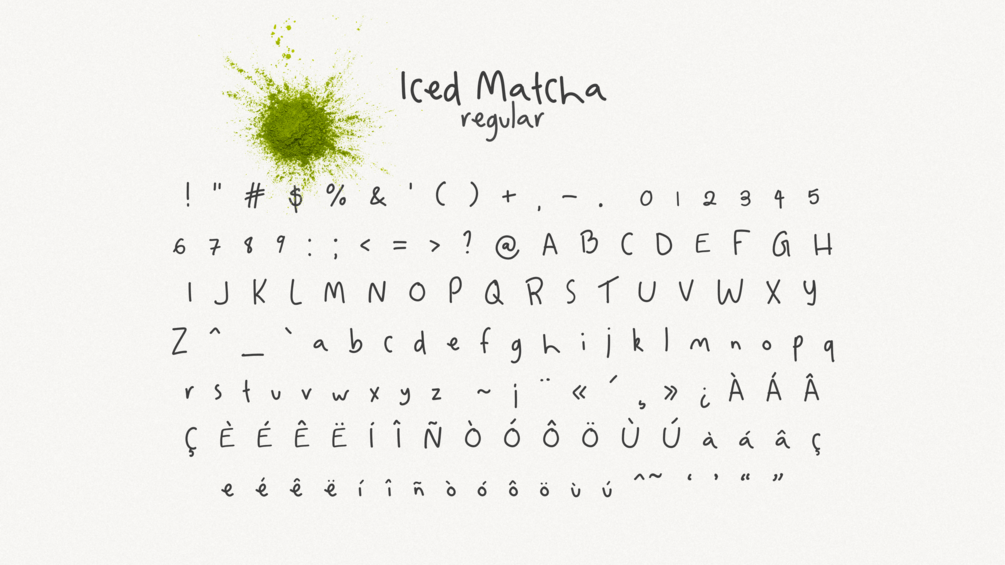 Iced Matcha
regular
! " # $ % & ' ( ) + , – . 0 1 2 3 4 5
6 7 8 9 : ; < = > ? @ A B C D E F G H
I J K L M N O P Q R S T U V W X Y
Z ^ _ ` a b c d e f g h i j k l m n o p q
r s t u v w x y z ~ ¡ ¨ « ´ ¸ » ¿ À Á Â
Ç È É Ê Ë Í Î Ñ Ò Ó Ô Ö Ù Ú à á â ç
è é ê ë í î ñ ò ó ô ö ù ú ˆ ˜ ‘ ’ “ ”